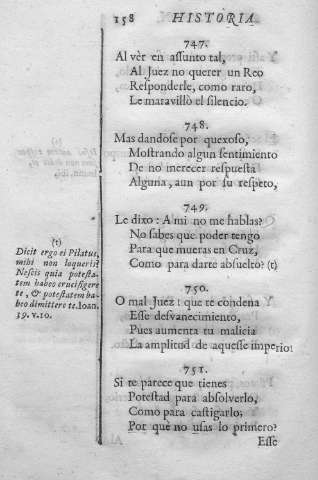 158 HISTORIA
747.
Al vèr en assunto tal,
Al Juez no querer un Reo
Responderle, como raro,
Le maravillò el silencio.
748.
Mas dandose por quexoso,
Mostrando algun sentimiento
De no merecer respuesta
Alguna, aun por su respeto,
749.
Le dixo: A mi no me hablas?
No sabes que poder tengo
Para que mueras en Cruz,
Como para darte absuelto? (t)
(t)
Dicit ergo ei Pilatus,
mihi non loqueris?
Nescis quia potesta-
tem habeo crucifigere
te, & potestatem ha-
beo dimittere te. Ioan.
39. v. 10.
750.
O mal Juez! que te condena
Esse desvanecimiento,
Pues aumenta tu malicia
La amplitud de aquesse imperio!
751.
Si te parece que tienes
Potestad para absolverlo,
Como para castigarlo;
Por què no usas lo primero?
Esse